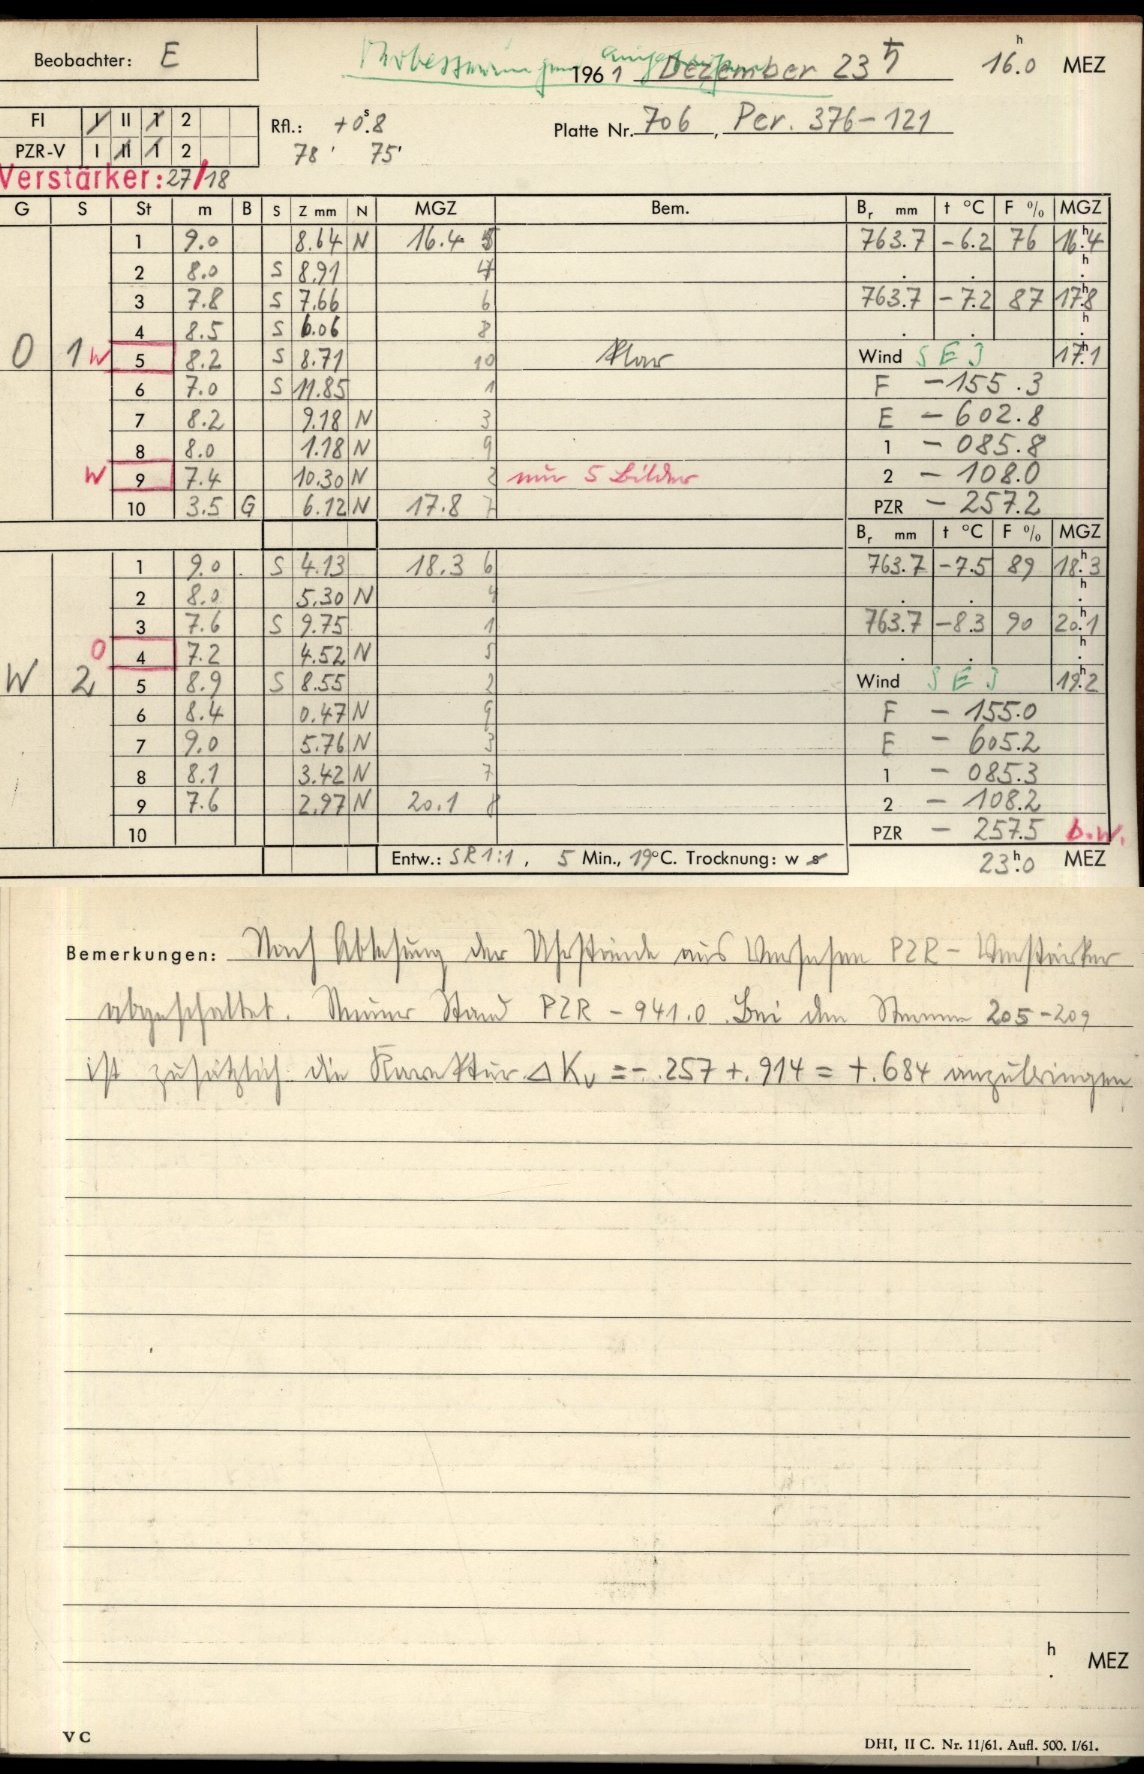 Beobachter: E
1961 Dezember 23 ħ 16.0 h MEZ
FI I II 1 2
PZR-V I II 1 2
Rfl.: +0.8 s
78' 75'
Platte Nr. 706, Per. 376-121
Verstärker: 27/18
G S St m B S Z mm N MGZ Bem. Br mm t °C F % MGZ
1 9.0 8.64 N 16.4 5 763.7 -6.2 76 16.4 h
2 8.0 S 8.91 4 h
3 7.8 S 7.66 6 763.7 -7.2 87 17.8 h
4 8.5 S 6.06 8 h
O 1 W 5 8.2 S 8.71 10 klar Wind S E 17.1 h
6 7.0 S 11.85 1 F -155.3
7 8.2 9.18 N 3 E -602.8
8 8.0 1.18 N 9 1 -085.8
W 9 7.4 10.30 N 2 nur 5 Bilder 2 -108.0
10 3.5 G 6.12 N 17.8 7 PZR -257.2
Br mm t °C F % MGZ
1 9.0 S 4.13 18.3 6 763.7 -7.5 89 18.3 h
2 8.0 5.30 N 4 h
3 7.6 S 9.75 1 763.7 -8.3 90 20.1 h
O 4 7.2 4.52 N 5 h
W 2 5 8.9 S 8.55 2 Wind S E 19.2 h
6 8.4 0.47 N 9 F -155.0
7 9.0 5.76 N 3 E -605.2
8 8.1 3.42 N 7 1 -085.3
9 7.6 2.97 N 20.1 8 2 -108.2
10 PZR -257.5 b.w.
Entw.: SR 1:1, 5 Min., 19°C. Trocknung: w s 23.0 h MEZ
Bemerkungen: Nach Ablesung der Uhrstände aus Versehen PZR-Verstärker
abgeschaltet. Neuer Stand PZR -941.0. Bei den Sternen 205-209
ist zusätzlich die Korrektur ΔKv = -.257 +.914 = +.684 anzubringen
h MEZ
V C
DHI, II C. Nr. 11/61. Aufl. 500. I/61.